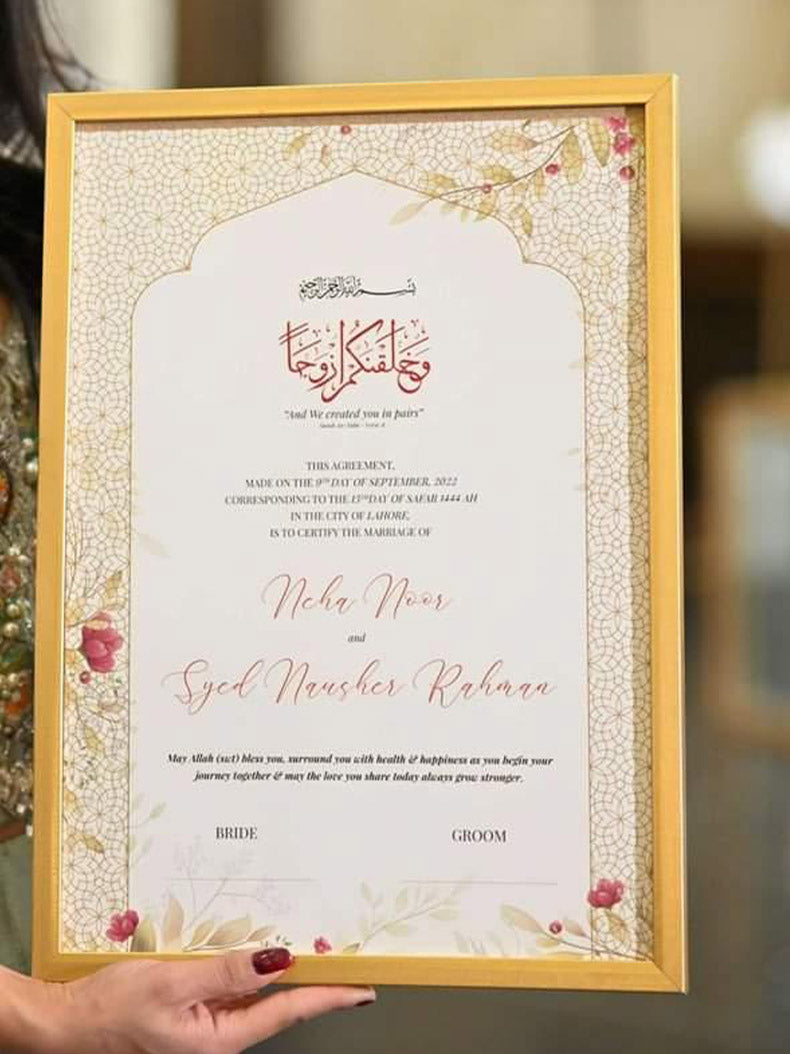 بسم الله الرحمن الرحيم
وَخَلَقْنَكُمْ أَزْوَجًا
"And We created you in pairs"
Surah An-Naba - Verse 8
THIS AGREEMENT,
MADE ON THE 9TH DAY OF SEPTEMBER, 2022
CORRESPONDING TO THE 13TH DAY OF SAFAR 1444 AH
IN THE CITY OF LAHORE,
IS TO CERTIFY THE MARRIAGE OF
Neha Noor
and
Syed Nausher Rahman
May Allah (swt) bless you, surround you with health & happiness as you begin your
journey together & may the love you share today always grow stronger.
BRIDE
GROOM